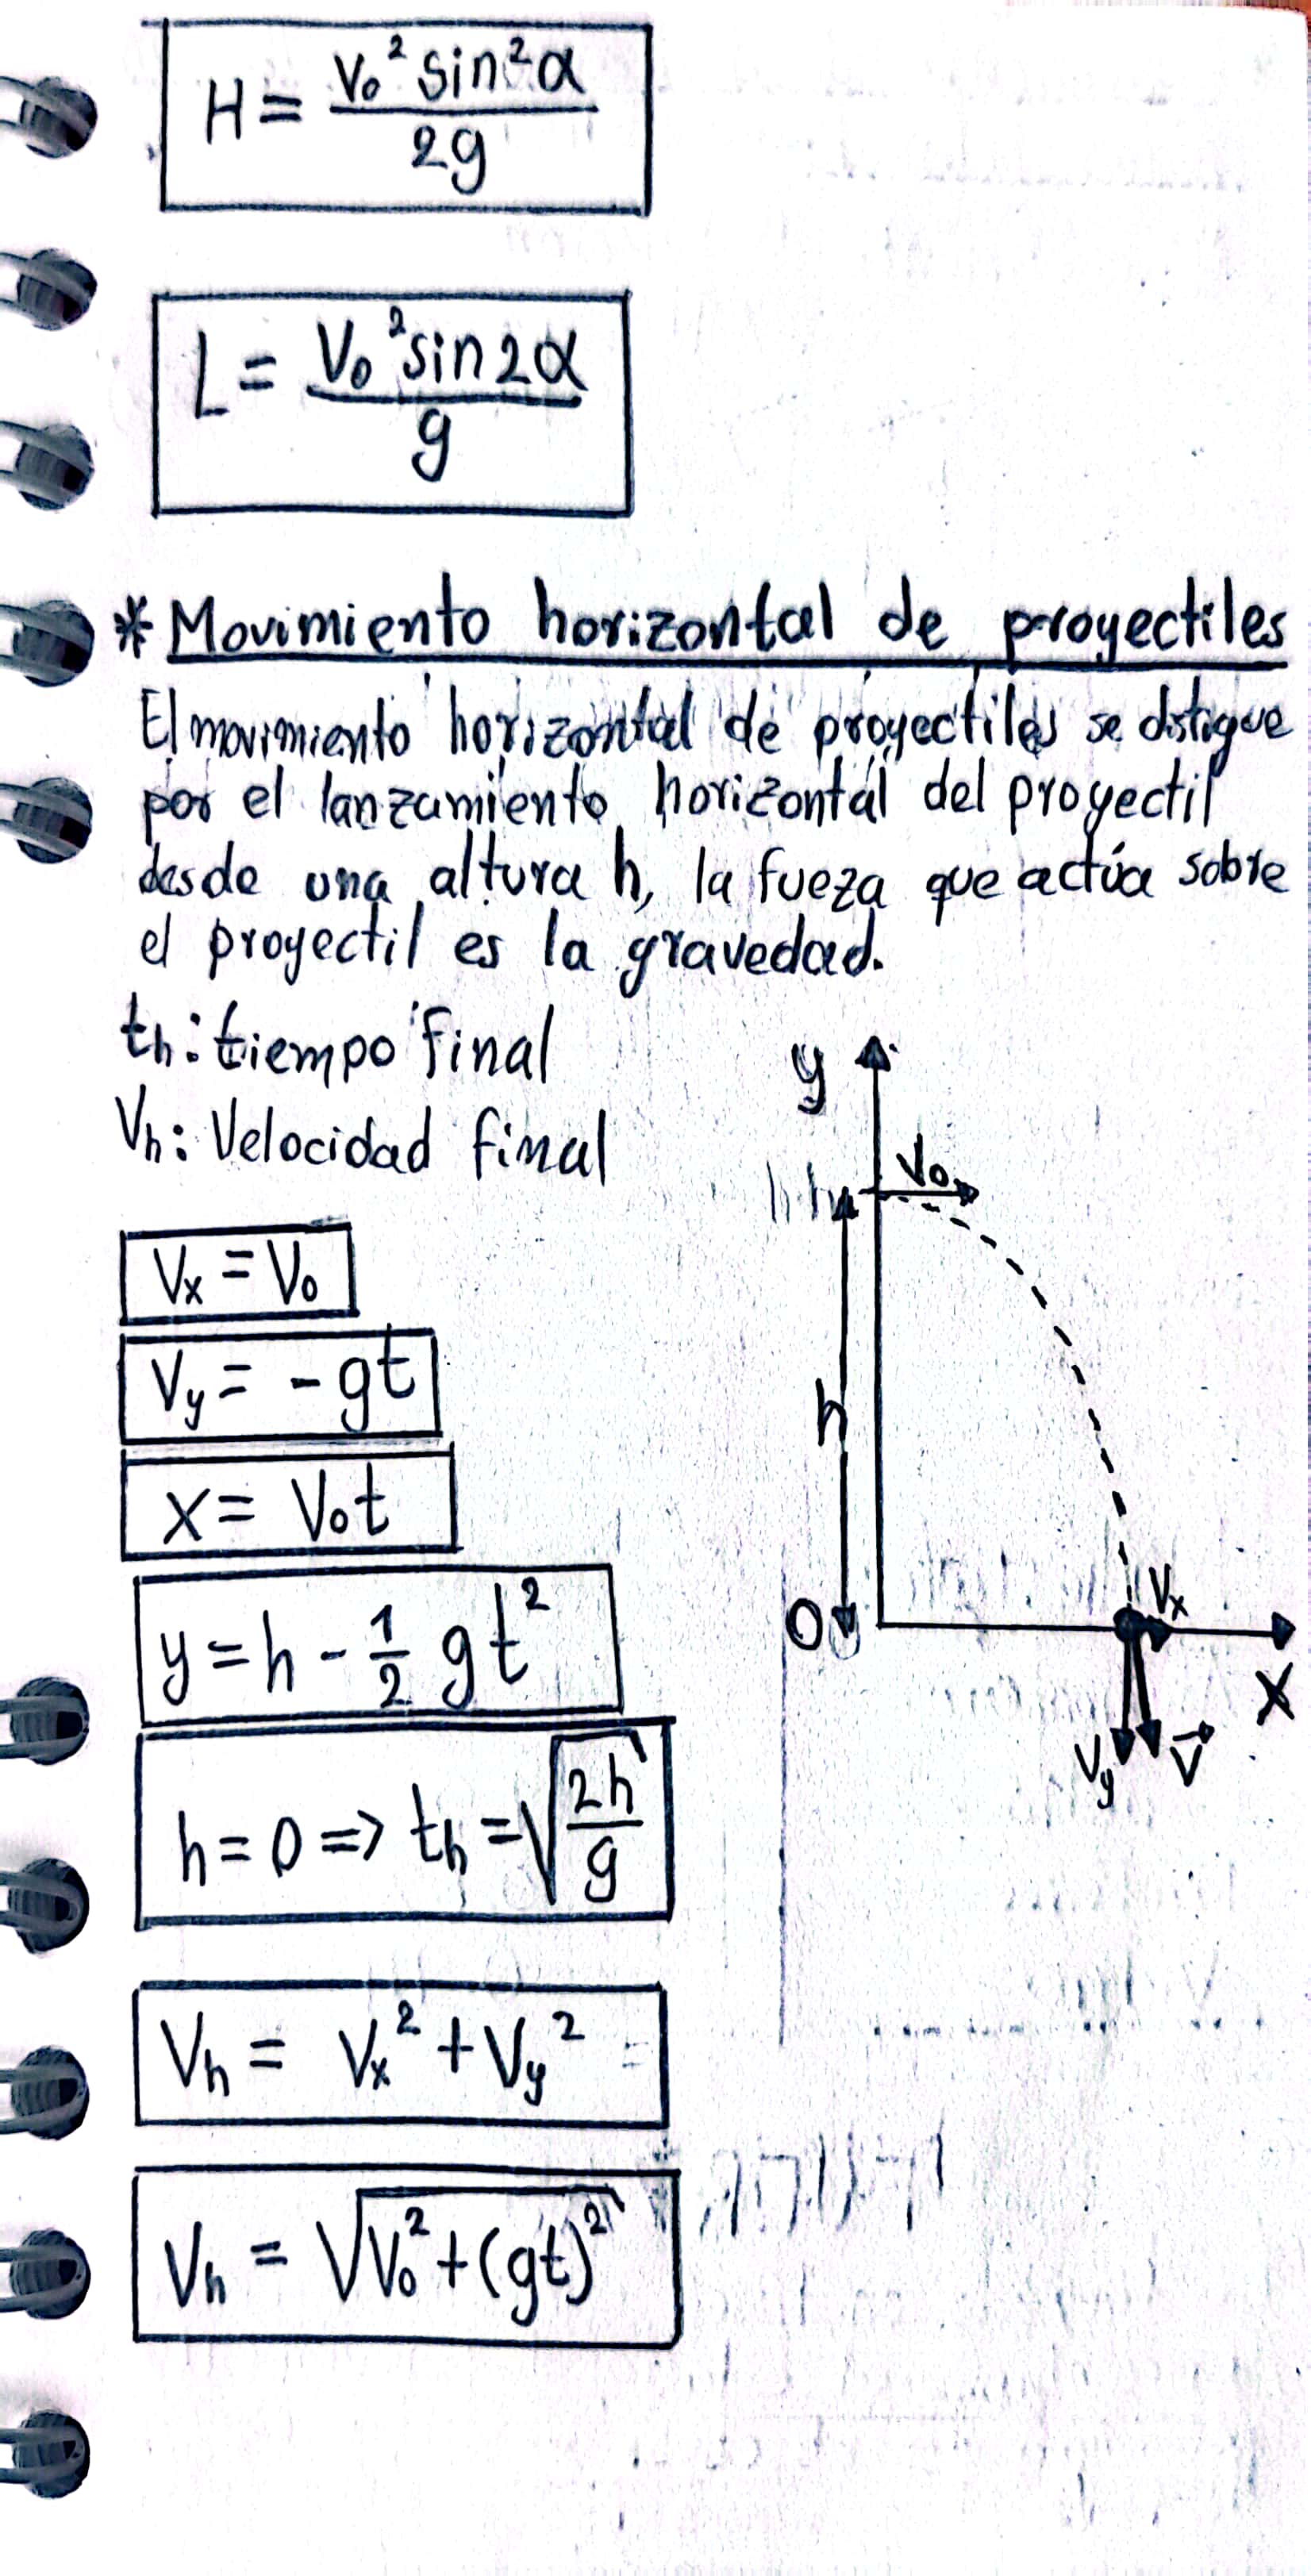 H = V₀² sin²α / 2g
L = V₀² sin2α / g
* Movimiento horizontal de proyectiles
El movimiento horizontal de proyectiles se distigue
por el lanzamiento horizontal del proyectil
desde una altura h, la fueza que actúa sobre
el proyectil es la gravedad.
th: tiempo final
Vh: Velocidad final
Vx = V₀
Vy = - gt
x = V₀t
y = h - 1/2 gt²
h = 0 => th = √(2h/g)
Vh = Vx² + Vy²
Vh = √(V₀² + (gt)²)
y
V₀
h
0
Vx
X
Vy
V⃗